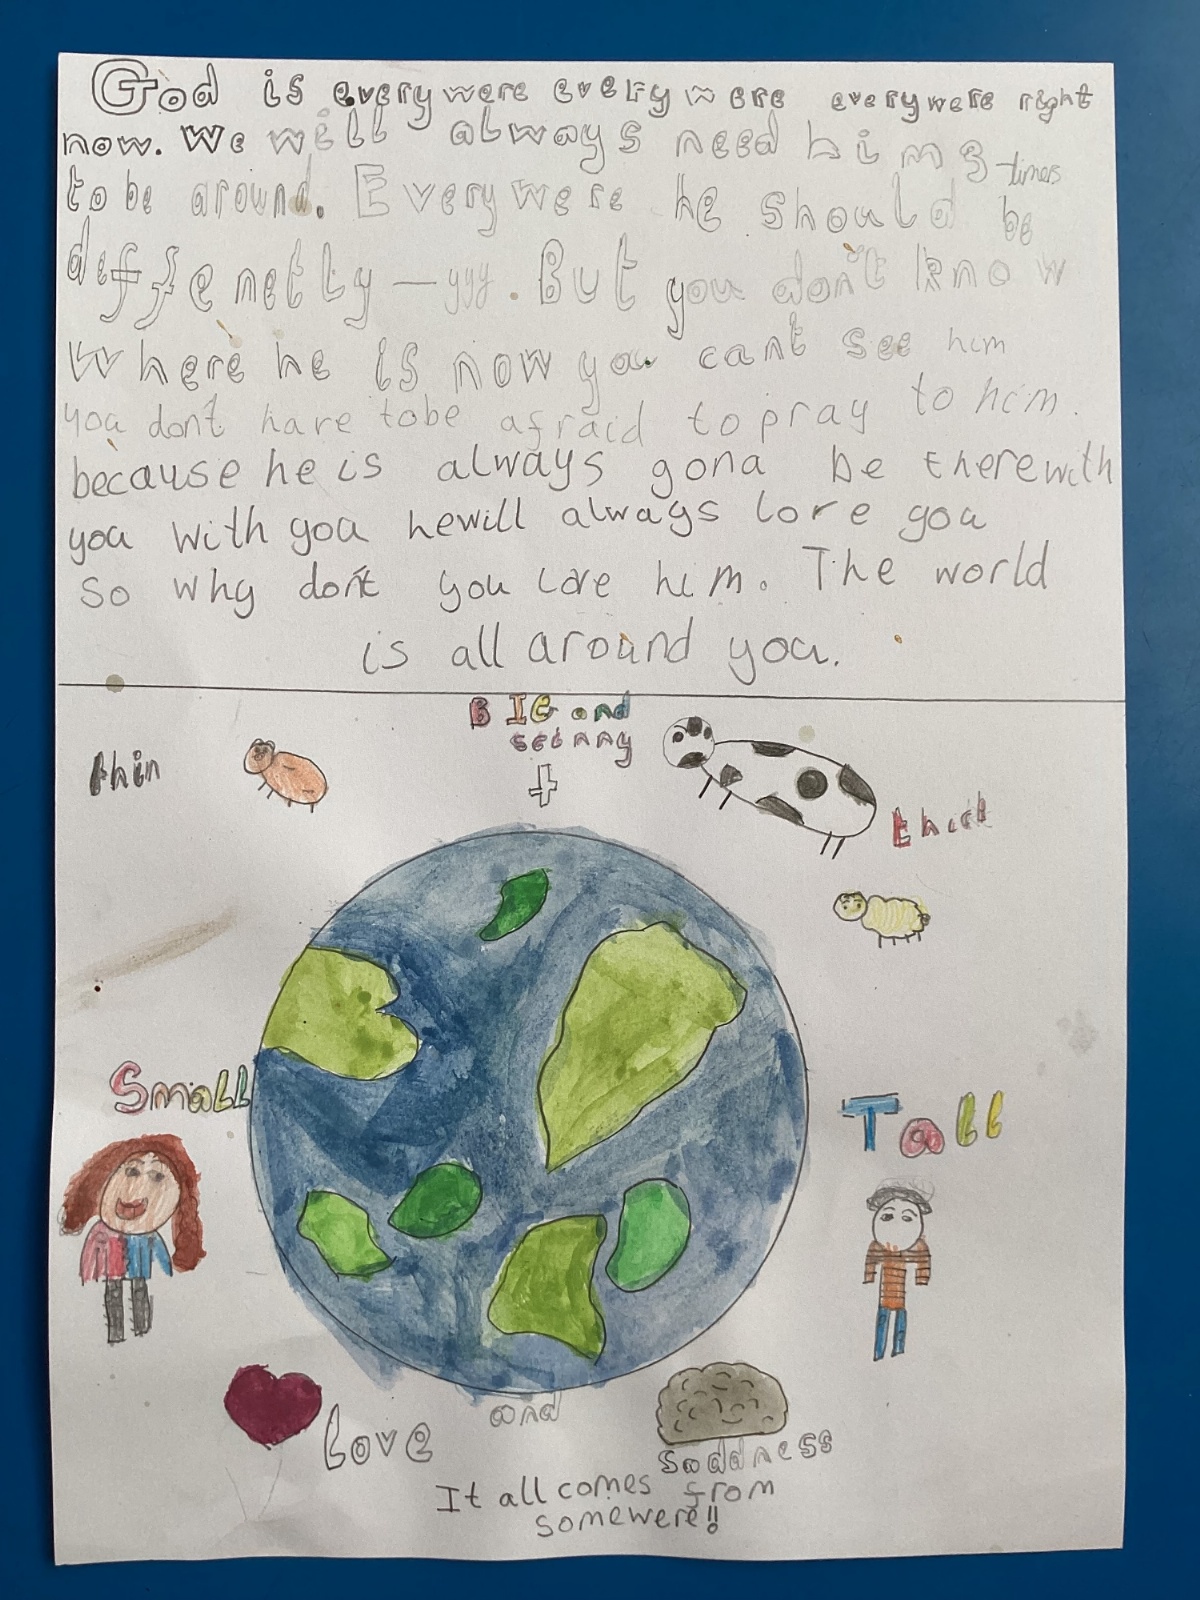 God is everywere everywere everywere right
now. We will always need him 3 times
to be around. Everywere he should be
diffenetly — yyy. But you don't know
Where he is now you cant see him
you dont have to be afraid to pray to him.
because he is always gona be there with
you with you he will always love you
So why don't you love him. The world
is all around you.
BIG and
scinny
thin
thick
Small
Tall
and
love
Saddness
It all comes from
somewere!!